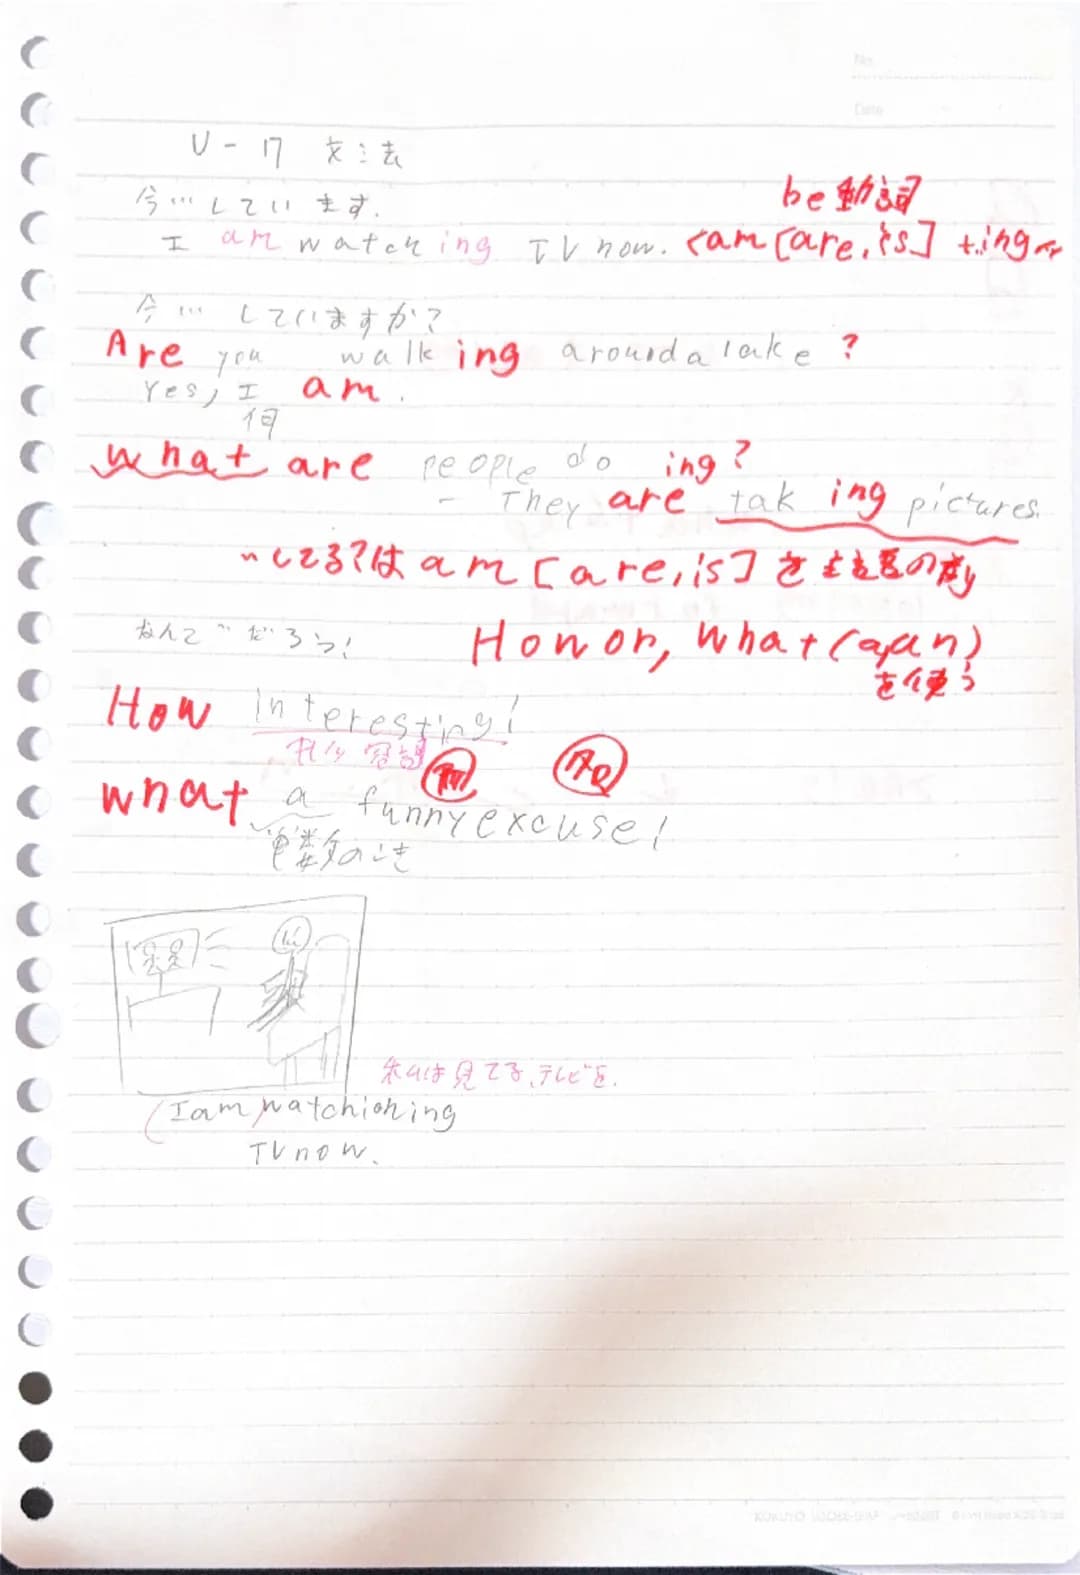 No.
Date
U-17 文法
今…しています.
be動詞
I am watching TV now. <am [are, is] +.ing
今… していますか?
Are you walking around a lake ?
Yes, I am.
何
what are people do ing?
- They are taking pictures.
…してる?は am [are, is] を主語の前
なんて〝だろう!
How or, What (a,an)
を使う
How interesting!
形
名
what a funny excuse!
単数のとき
私は見てる、テレビを.
(I am watchiohing
TV now.